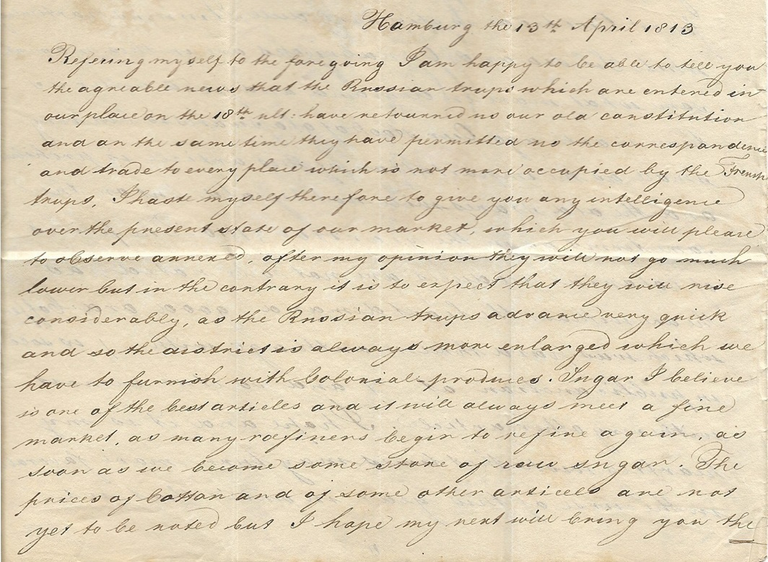 Hamburg the 13th April 1813
Refering myself to the foregoing I am happy to be able to tell you
the agreable news that the Russian trups which are entered in
our place on the 18th ult: have retourned us our old constitution
and an the same time they have permitted us the correspondence
and trade to every place which is not more occupied by the French
trups. I haste myself therefore to give you any intelligence
over the present state of our market, which you will please
to observe annexed, after my opinion they will not go much
lower but in the contrary it is to expect that they will rise
considerably, as the Russian trups advance very quick
and so the district is always more enlarged which we
have to furnish with Colonial-produces. Sugar I believe
is one of the best articles and it will always meet a fine
market, as many refiners begin to refine again, as
soon as we become some store of raw sugar. The
prices of Cotton and of some other articels are not
yet to be noted but I hope my next will bring you the